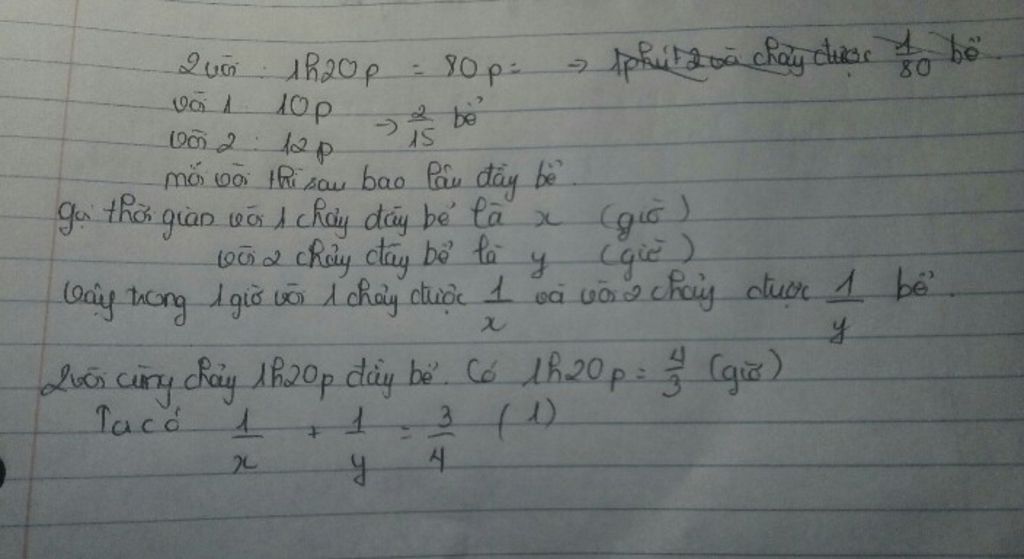 2 vòi : 1h20p = 80p = → 1 phút 2 vòi chảy được 1/80 bể
vòi 1 10p
→ 2/15 bể
vòi 2 : 12p
mỗi vòi thì sau bao lâu đầy bể.
gọi thời gian vòi 1 chảy đầy bể là x (giờ)
vòi 2 chảy đầy bể là y (giờ)
Vậy trong 1 giờ vòi 1 chảy được 1/x và vòi 2 chảy được 1/y bể.
2 vòi cùng chảy 1h20p đầy bể. Có 1h20p = 4/3 (giờ)
Ta có 1/x + 1/y = 3/4 (1)